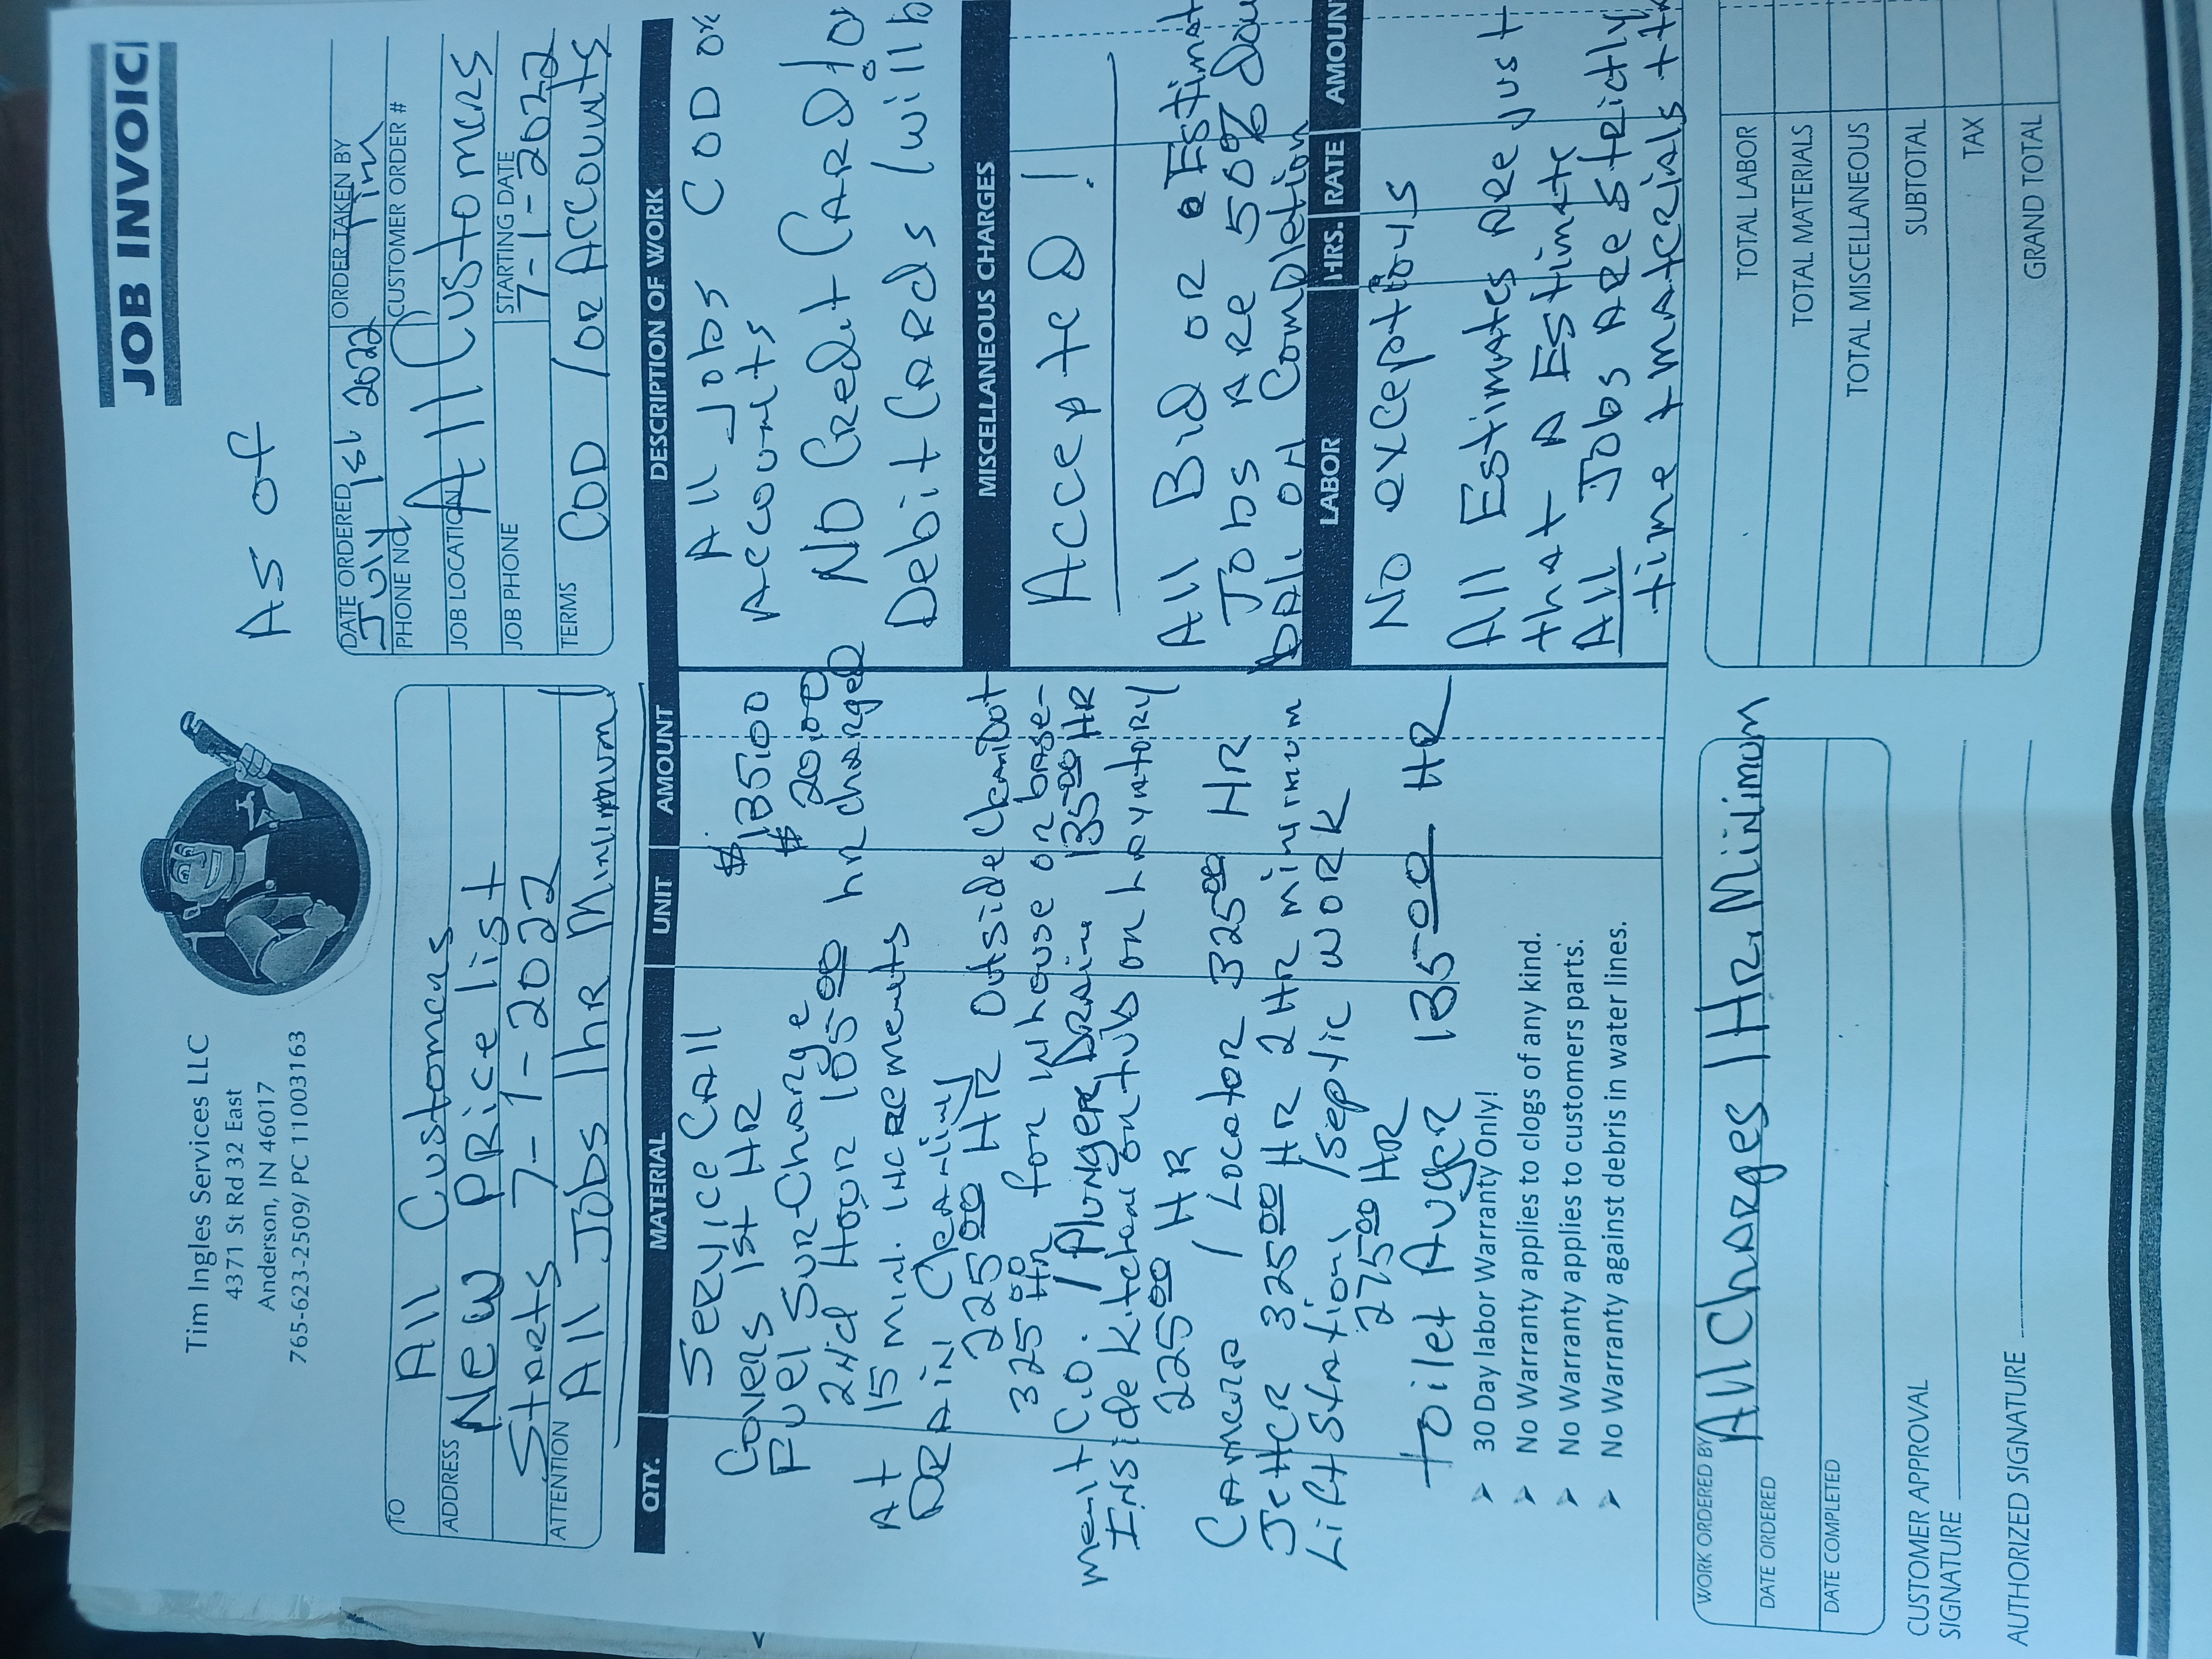 JOB INVOIC
Tim Ingles Services LLC
4371 St Rd 32 East
Anderson, IN 46017
765-623-2509/ PC 110003163
As of
TO All Customers
ADDRESS New Price list
Starts 7-1-2022
ATTENTION All Jobs 1hr Minimum
DATE ORDERED July 1st 2022
ORDER TAKEN BY Tim
PHONE NO.
CUSTOMER ORDER #
JOB LOCATION All Customers
JOB PHONE
STARTING DATE 7-1-2022
TERMS COD / or Accounts
QTY. MATERIAL UNIT AMOUNT
Service Call
Covers 1st HR $135.00
Fuel Sur-Charge $20.00
2nd Hour 105.00 hr charged
At 15 min. increments
Drain Cleaning
225.00 HR Outside Cleanout
325.00 Hr for in house or base-
ment C.O. / Plunger Drain 135.00 HR
Inside kitchen or tub or lavatory
225.00 HR
Camera / Locator 325.00 HR
Jetter 325.00 HR 2 HR minimum
Lift Station / Septic work
275.00 HR
toilet Auger 135.00 HR
30 Day labor Warranty Only!
No Warranty applies to clogs of any kind.
No Warranty applies to customers parts.
No Warranty against debris in water lines.
DESCRIPTION OF WORK
All Jobs COD or
Accounts
No Credit Card / o
Debit Cards / will b
MISCELLANEOUS CHARGES
Accepted!
All Bid or Estimat
Jobs Are 50% dow
bal. on Completion
LABOR HRS. RATE AMOUN
No exceptions
All Estimates Are just
that A Estimate
All Jobs Are strictly
time + materials
WORK ORDERED BY All Charges 1 Hr. Minimum
DATE ORDERED
DATE COMPLETED
CUSTOMER APPROVAL
SIGNATURE
AUTHORIZED SIGNATURE
TOTAL LABOR
TOTAL MATERIALS
TOTAL MISCELLANEOUS
SUBTOTAL
TAX
GRAND TOTAL